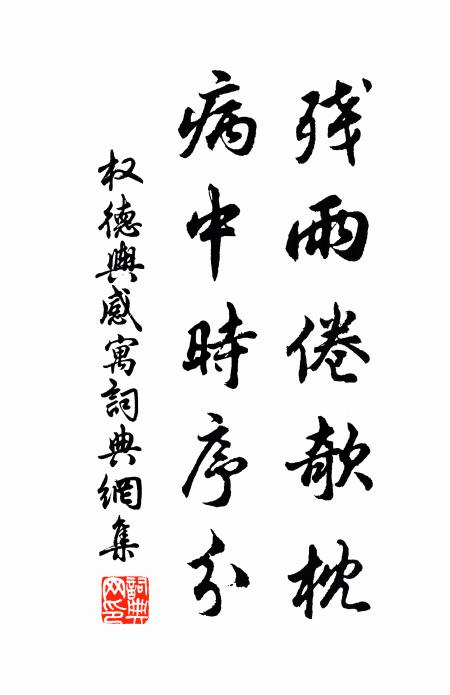 残雨倦欹枕
病中時序分
权德舆感寓詞典網集
詞典网印